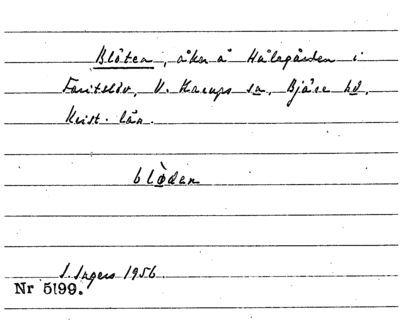 Blöten, åker å Hålagården i
Faritslöv, V. Karups sn, Bjäre hd,
Krist. län.
blöden
I. Ingers 1956
Nr 5199.